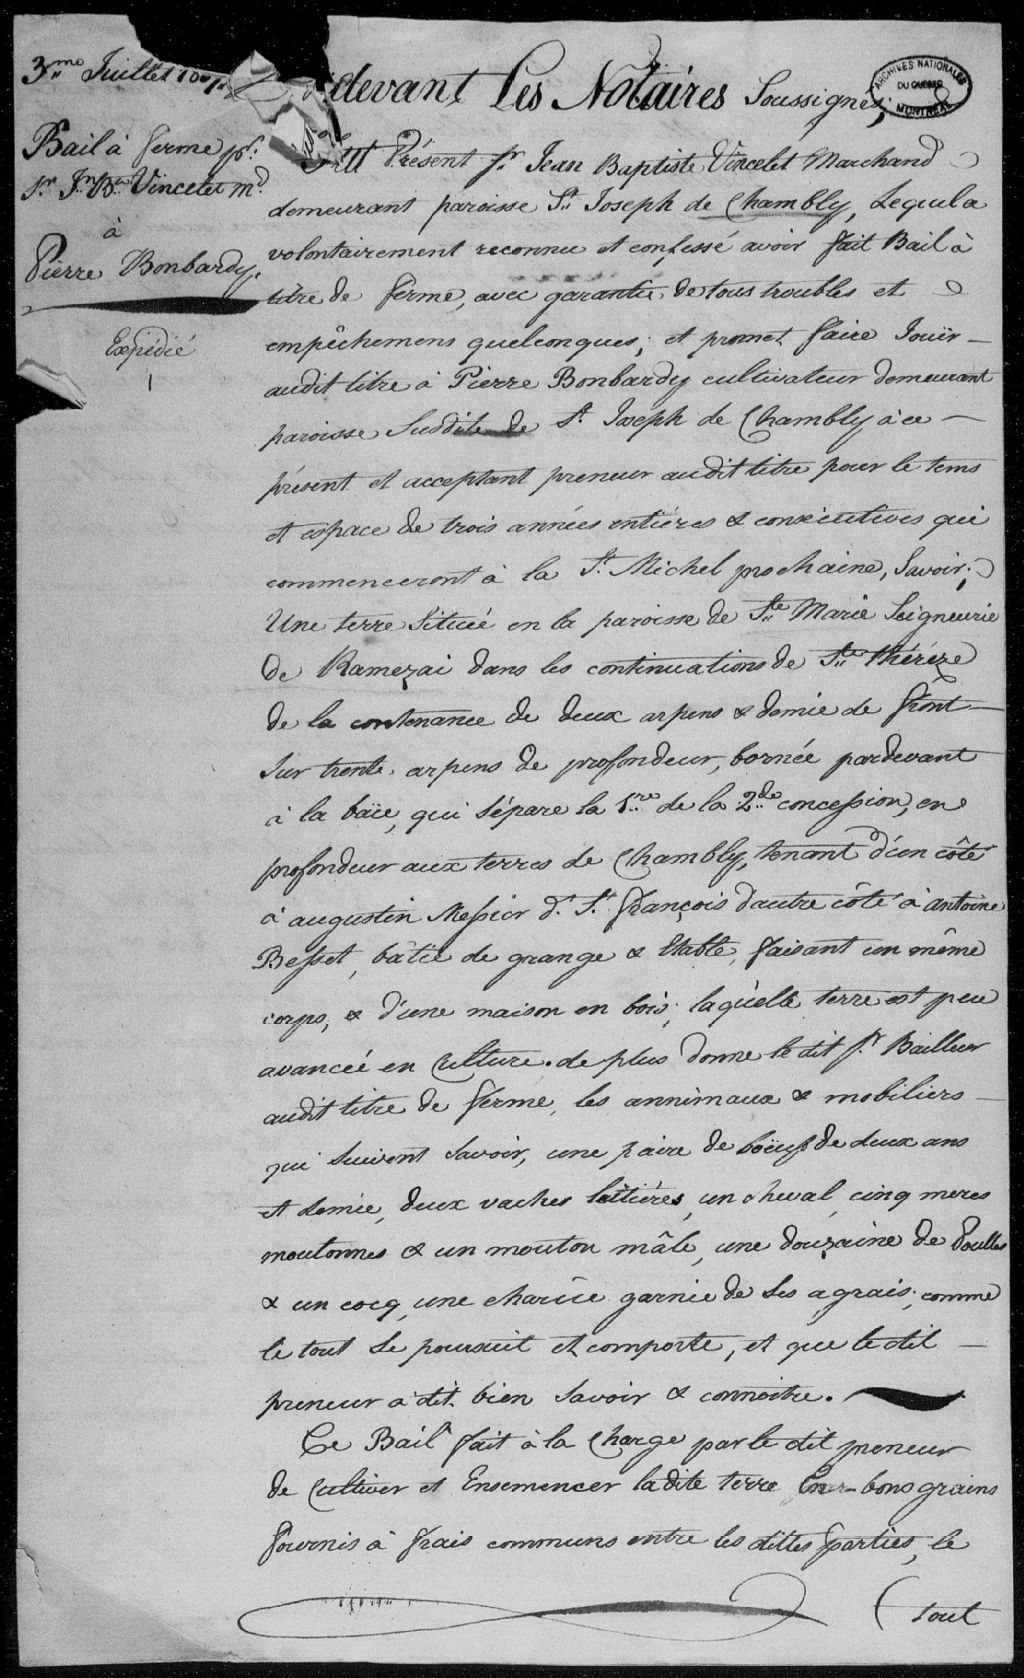 3.me Juillet
Bail à ferme pr.
Sr. Jn. Bte Vincelet md.
à
Pierre Bonbardy.
Expédié
1
devant Les Notaires Soussignés;
ARCHIVES NATIONALES
DU QUÉBEC
MONTRÉAL
Fut Présent Sr. Jean Baptiste Vincelet Marchand
demeurant paroisse St. Joseph de Chambly, Lequel a
volontairement reconnu et confessé avoir fait Bail à
titre de ferme, avec garantie de tous troubles et
empêchemens quelconques; et promet faire Jouïr
audit titre à Pierre Bonbardy cultivateur demeurant
paroisse Susdite de St. Joseph de Chambly à ce
présent et acceptant preneur audit titre pour le tems
et espace de trois années entières & consécutives qui
commenceront à la St. Michel prochaine, Savoir;
Une terre Située en la paroisse de Ste. Marie Seigneurie
De Ramezai dans les continuations de Ste. Thérèze
de la contenance de deux arpens & demie de front
Sur trente arpens de profondeur, bornée pardevant
à la baïe, qui Sépare la 1.re de la 2.de concession, en
profondeur aux terres de Chambly, tenant d'un côté
à augustin Messier d. St. François d'autre côté à antoine
Besset, bâtie de grange & Etable, faisant un même
corps, & d'une maison en bois; laquelle terre est peu
avancée en Culture. de plus donne le dit Sr. Bailleur
audit titre de ferme, les annimaux & mobiliers
qui Suivent Savoir, une paire de boëufs de deux ans
et demie, deux vaches laitières, un cheval, cinq meres
moutonnes & un mouton mâle, une douzaine de Poulles
& un cocq, une charüe garnie de Ses agrais; comme
le tout Se poursuit et comporte, et que le dit
preneur a dit bien Savoir & connoitre.
Ce Bail fait à la Charge par le dit preneur
de Cultiver et Ensemencer ladite terre En bons grains
fournis à frais communs entre les dittes parties, le
(tout